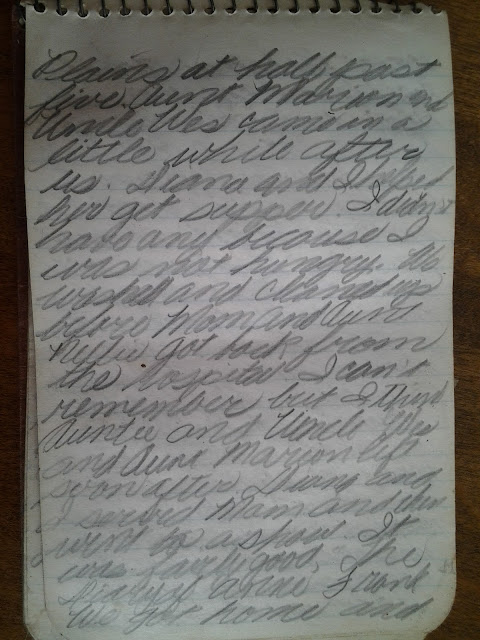 Plains at half past
five. Aunt Marion and
Uncle Wes came in a
little while after
us. Diana and I helped
her get supper. I didn't
have any because I
was not hungry. We
washed and cleaned up
before Mom and Aunt
Nellie got back from
the hospital I can't
remember but I think
Auntie and Uncle Wes
and Aunt Marion left
soon after. Diana and
I served Mom and then
went to a show. It
was fairly good, The
Diary of Anne Frank
We got home and